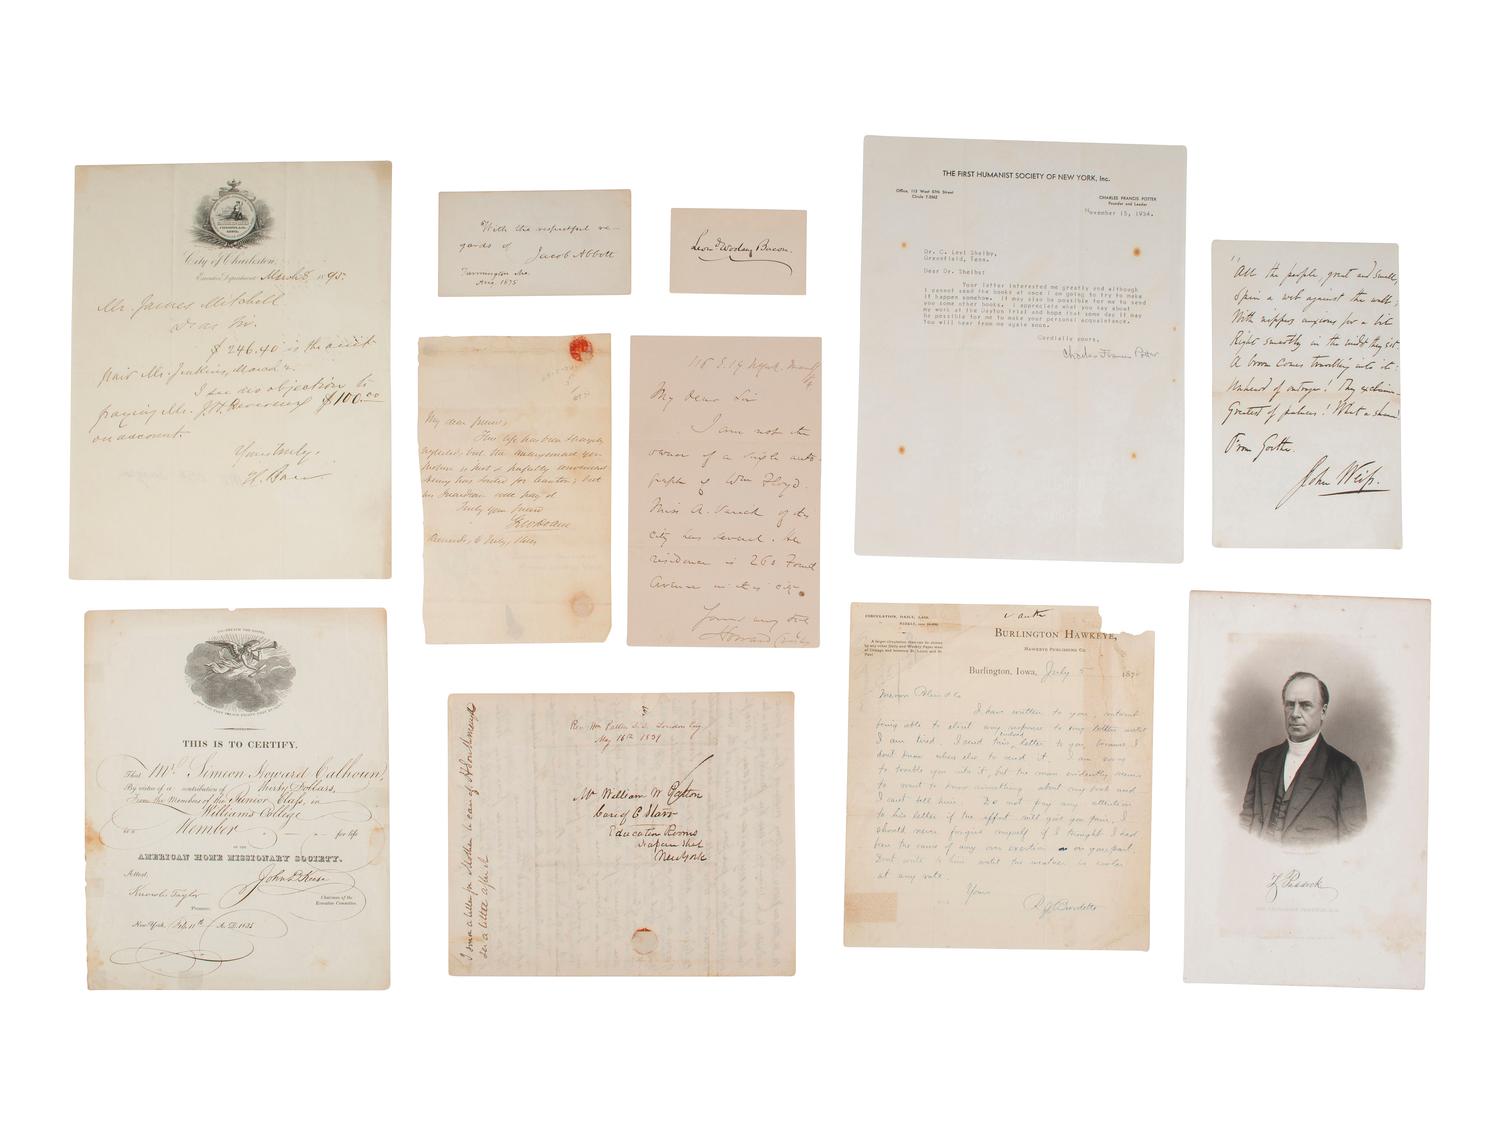 City of Charleston,
Executive Department, March 8 1895.
Mr. James Mitchell
Dear Sir.
$246.40 is the am't
paid Mr. Jenkins, March 2.
I see no objection to
paying Mr. $100.00
on account.
Yours truly,
With the respectful re-
gards of
Jacob Abbott
Farmington Me.
Aug. 1875
Leonard Woolsey Bacon.
THE FIRST HUMANIST SOCIETY OF NEW YORK, Inc.
Office, 113 West 57th Street
Circle 7-
CHARLES FRANCIS POTTER
Founder and Leader
November 15, 1934.
Dr. C. Levi Shelby,
Greenfield, Tenn.
Dear Dr. Shelby:
Your letter interested me greatly and although
I cannot send the books at once I am going to try to make
it happen somehow. It may also be possible for me to send
you some other books. I appreciate what you say about
my work at the Dayton trial and hope that some day it may
be possible for me to make your personal acquaintance.
You will hear from me again soon.
Cordially yours,
Charles Francis Potter
"All the people, great and small,
Spin a web against the wall;
With nippers anxious for a bit
Right smartly in the midst they sit.
A broom comes travelling into it:
Unheard of outrage! They exclaim—
Greatest of palaces! What a shame!
From Goethe.
John Weiss.
My dear friend,
This has been strangely
neglected, but the
is just & perfectly convenient
for Canton; but
his Guardian will pay it
Truly your friend
Geo Doane
116 E. 19 NYork
My dear Sir
I am not the
owner of a single auto-
graph of Wm Floyd.
Miss A. of this
city has several. Her
residence is 260 Fourth
Avenue in this city.
Yours very truly
Howard Crosby
GO PREACH THE GOSPEL
THIS IS TO CERTIFY,
That Mr. Simeon Howard Calhoun,
By virtue of a contribution of thirty Dollars,
From the Members of the Junior Class, in
Williams College
is a Member for life
OF THE
AMERICAN HOME MISSIONARY SOCIETY.
Attest,
Knowles Taylor
Treasurer.
Chairman of the
Executive Committee.
New-York, Feb. 11th A.D. 1835
Rev. Wm Patton D.D. London Eng.
May 16th 1839
Mr William W Patton
Care of C Starr
Education Rooms
New York
I send a letter for Mother to care of
CIRCULATION, DAILY,
WEEKLY,
A larger circulation than can be shown
by any other Daily and Weekly Paper west
of Chicago and between St. Louis and St.
Paul
BURLINGTON HAWKEYE,
HAWKEYE PUBLISHING CO.
Burlington, Iowa, July 5 187
I have written to you, without
being able to elicit any response to my letters until
I am tired. I send this letter to you, because I
dont know where else to send it. I am sorry
to trouble you with it, but the man evidently seems
to want to know something about my book and
I cant tell him. Do not pay any attention
to his letter if the effort will give you pain, I
should never forgive myself if I thought I had
been the cause of any over exertion on your part.
Dont write to him until the weather is cooler
at any rate.
Yours
R. J. Burdette
Z Paddock